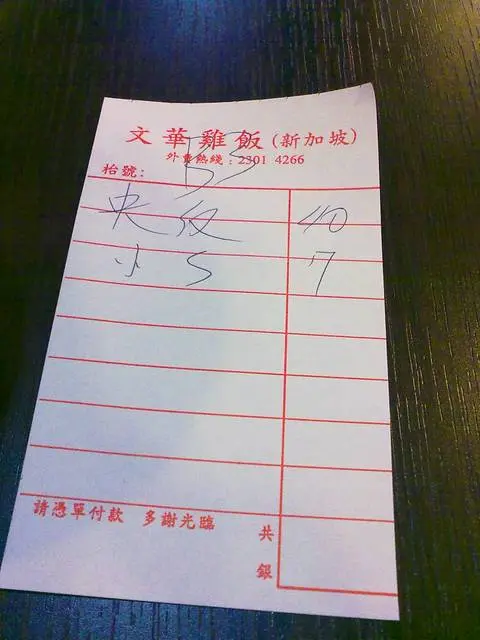 文華雞飯(新加坡)
外賣熱綫:2301 4266
枱號: B3
央反 40
小 5 7
請憑單付款 多謝光臨 共銀